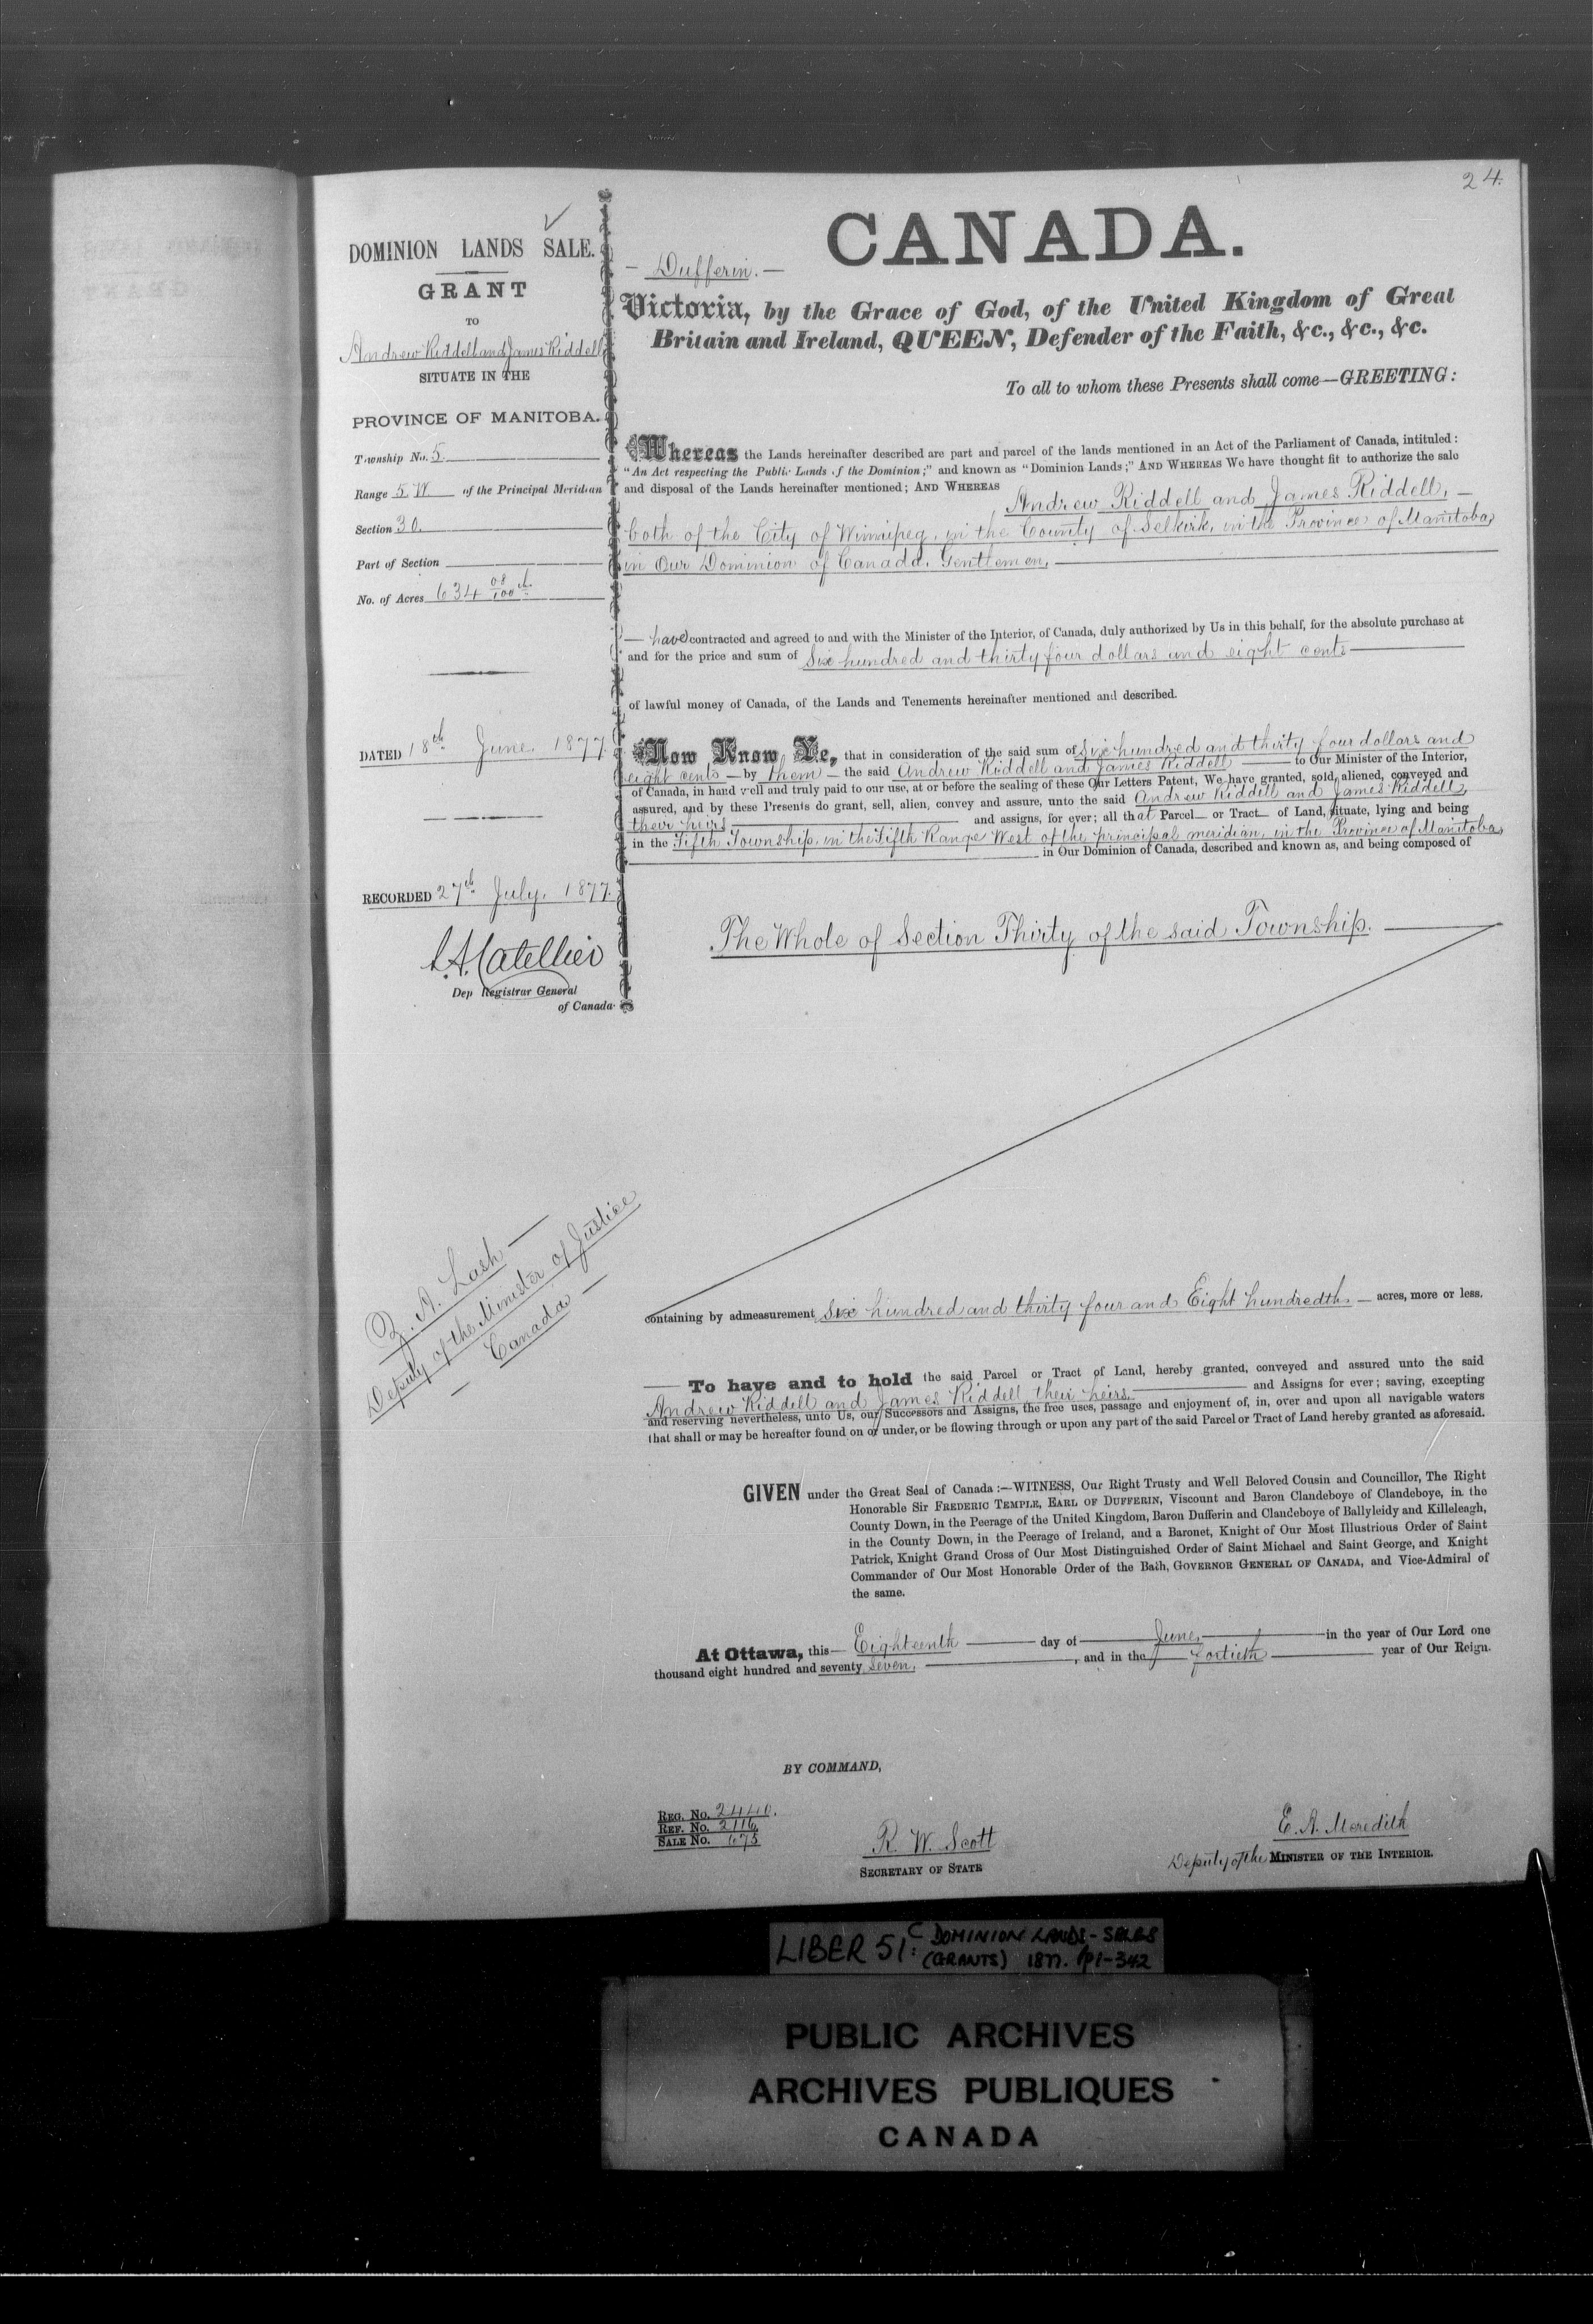 24.
DOMINION LANDS SALE.
GRANT
TO
Andrew Riddell and James Riddell
SITUATE IN THE
PROVINCE OF MANITOBA.
Township No. 5
Range 5 W of the Principal Meridian
Section 30.
Part of Section
No. of Acres 634 08/100 A.
DATED 18th June, 1877.
RECORDED 27th July, 1877.
L.A. Catellier
Dep Registrar General
of Canada
Z. A. Lash
Deputy of the Minister of Justice
Canada
CANADA.
– Dufferin. –
Victoria, by the Grace of God, of the United Kingdom of Great
Britain and Ireland, QUEEN, Defender of the Faith, &c., &c., &c.
To all to whom these Presents shall come—GREETING:
Whereas the Lands hereinafter described are part and parcel of the lands mentioned in an Act of the Parliament of Canada, intituled:
"An Act respecting the Public Lands of the Dominion;" and known as "Dominion Lands;" AND WHEREAS We have thought fit to authorize the sale
and disposal of the Lands hereinafter mentioned; AND WHEREAS Andrew Riddell and James Riddell, –
both of the City of Winnipeg, in the County of Selkirk, in the Province of Manitoba,
in Our Dominion of Canada, Gentlemen,
— have contracted and agreed to and with the Minister of the Interior, of Canada, duly authorized by Us in this behalf, for the absolute purchase at
and for the price and sum of Six hundred and thirty four dollars and eight cents
of lawful money of Canada, of the Lands and Tenements hereinafter mentioned and described.
Now Know Ye, that in consideration of the said sum of Six hundred and thirty four dollars and
eight cents – by them – the said Andrew Riddell and James Riddell — to Our Minister of the Interior,
of Canada, in hand well and truly paid to our use, at or before the sealing of these Our Letters Patent, We have granted, sold, aliened, conveyed and
assured, and by these Presents do grant, sell, alien, convey and assure, unto the said Andrew Riddell and James Riddell,
their heirs and assigns, for ever; all that Parcel or Tract of Land, situate, lying and being
in the Fifth Township, in the Fifth Range West of the principal meridian, in the Province of Manitoba,
in Our Dominion of Canada, described and known as, and being composed of
The Whole of Section Thirty of the said Township.
containing by admeasurement Six hundred and thirty four and Eight hundredths — acres, more or less.
To have and to hold the said Parcel or Tract of Land, hereby granted, conveyed and assured unto the said
Andrew Riddell and James Riddell their heirs, and Assigns for ever; saving, excepting
and reserving nevertheless, unto Us, our Successors and Assigns, the free uses, passage and enjoyment of, in, over and upon all navigable waters
that shall or may be hereafter found on or under, or be flowing through or upon any part of the said Parcel or Tract of Land hereby granted as aforesaid.
GIVEN under the Great Seal of Canada:—WITNESS, Our Right Trusty and Well Beloved Cousin and Councillor, The Right
Honorable Sir FREDERIC TEMPLE, EARL OF DUFFERIN, Viscount and Baron Clandeboye of Clandeboye, in the
County Down, in the Peerage of the United Kingdom, Baron Dufferin and Clandeboye of Ballyleidy and Killeleagh,
in the County Down, in the Peerage of Ireland, and a Baronet, Knight of Our Most Illustrious Order of Saint
Patrick, Knight Grand Cross of Our Most Distinguished Order of Saint Michael and Saint George, and Knight
Commander of Our Most Honorable Order of the Bath, GOVERNOR GENERAL OF CANADA, and Vice-Admiral of
the same.
At Ottawa, this Eighteenth day of June, in the year of Our Lord one
thousand eight hundred and seventy seven, , and in the fortieth year of Our Reign.
BY COMMAND,
REG. NO. 2440.
REF. NO. 2116.
SALE NO. 675
R. W. Scott
SECRETARY OF STATE
E. A. Meredith
Deputy of the MINISTER OF THE INTERIOR.
LIBER 51C: DOMINION LANDS - SALES
(GRANTS) 1877. pp1-342
PUBLIC ARCHIVES
ARCHIVES PUBLIQUES
CANADA